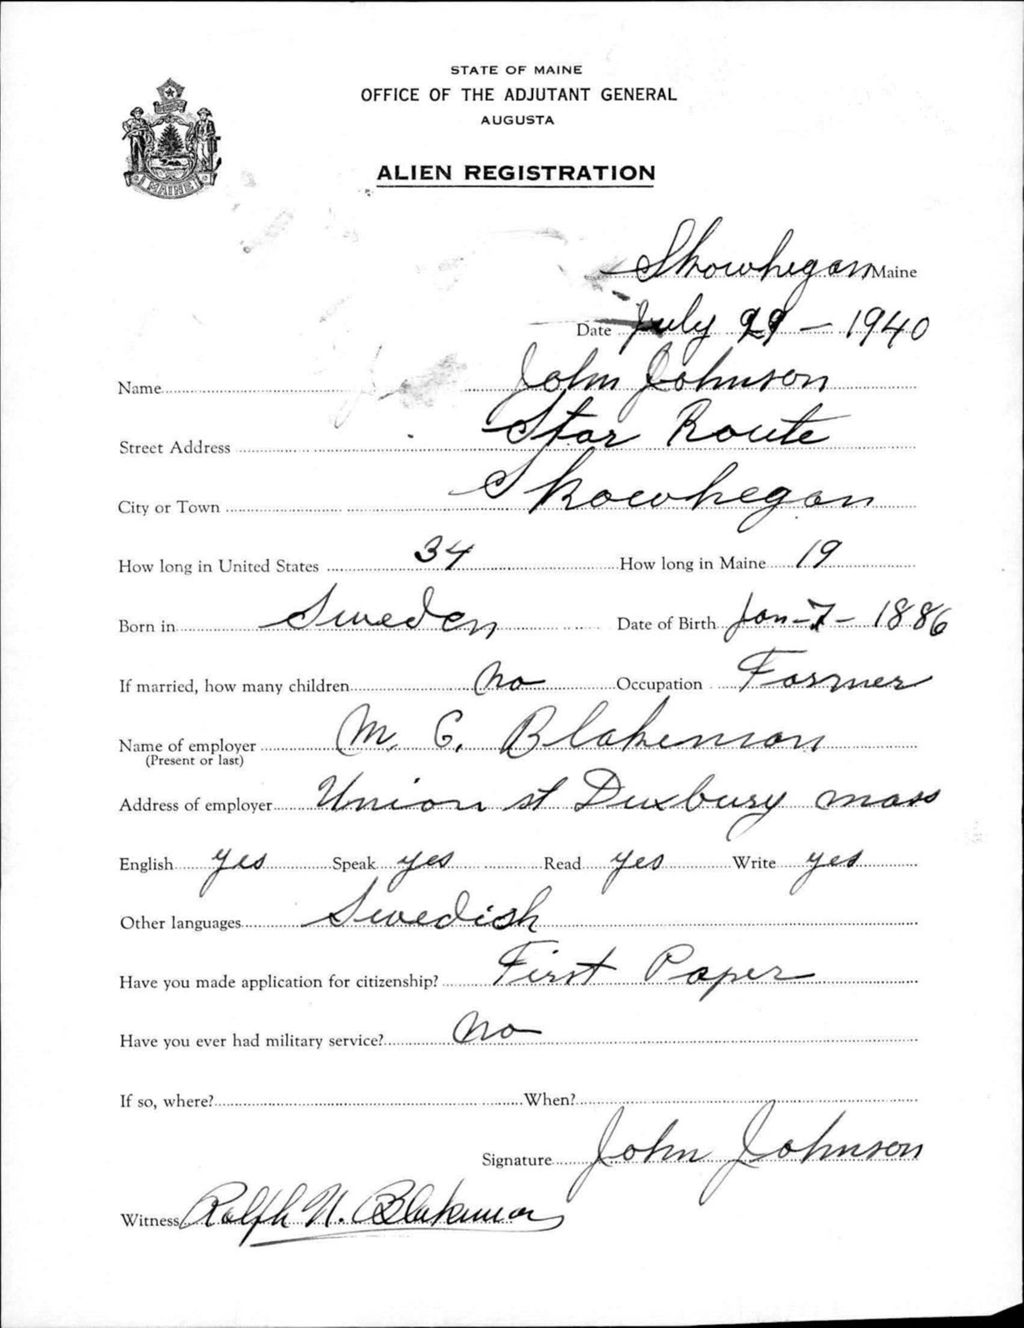 STATE OF MAINE
OFFICE OF THE ADJUTANT GENERAL
AUGUSTA
ALIEN REGISTRATION
MAINE
Skowhegan Maine
Date July 29 - 1940
Name John Johnson
Street Address Star Route
City or Town Skowhegan
How long in United States 34 How long in Maine 19
Born in Sweden Date of Birth Jan-7-1886
If married, how many children No Occupation Farmer
Name of employer M. C. Blakeman
(Present or last)
Address of employer Union st Duxbury Mass
English yes Speak yes Read yes Write yes
Other languages Swedish
Have you made application for citizenship? First Paper
Have you ever had military service? No
If so, where? When?
Signature John Johnson
Witness Ralph N. Blakeman